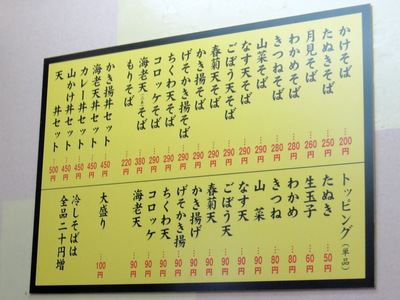 かけそば … 200円
たぬきそば … 250円
月見そば … 260円
わかめそば … 280円
きつねそば … 280円
山菜そば … 280円
なす天そば … 290円
ごぼう天そば … 290円
春菊天そば … 290円
かき揚そば … 290円
げそかき揚そば … 290円
ちくわ天そば … 290円
コロッケそば … 290円
海老天そば … 380円
もりそば … 220円
かき揚丼セット … 450円
海老天丼セット … 450円
カレー丼セット … 450円
山かけ丼セット … 450円
天 丼セット … 500円
トッピング(単品)
たぬき … 50円
生玉子 … 60円
わかめ … 80円
きつね … 80円
山 菜 … 80円
なす天 … 90円
ごぼう天 … 90円
春菊天 … 90円
かき揚げ … 90円
げそかき揚 … 90円
ちくわ天 … 90円
コロッケ … 90円
海老天 … 90円
大盛り … 100円
冷しそばは
全品二十円増